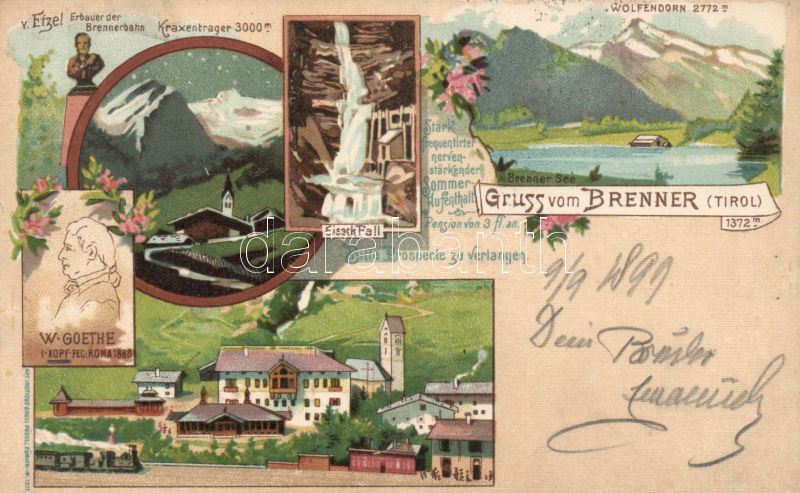 v. Etzel
Erbauer der
Brennerbahn
Kraxentrager 3000 m
WOLFENDORN. 2772 m
Stark
frequentirter
nerven-
stärkender
Sommer-
Aufenthalt
Pension von 3 fl. an.
Brenner See
GRUSS VOM BRENNER (TIROL)
1372 m
Eisack Fall
Bitte Prospecte zu verlangen.
darabanth
W. GOETHE
I. KOPF. FEC. ROMA 1888
9/9 1899
Dein Bruder
Emanuel